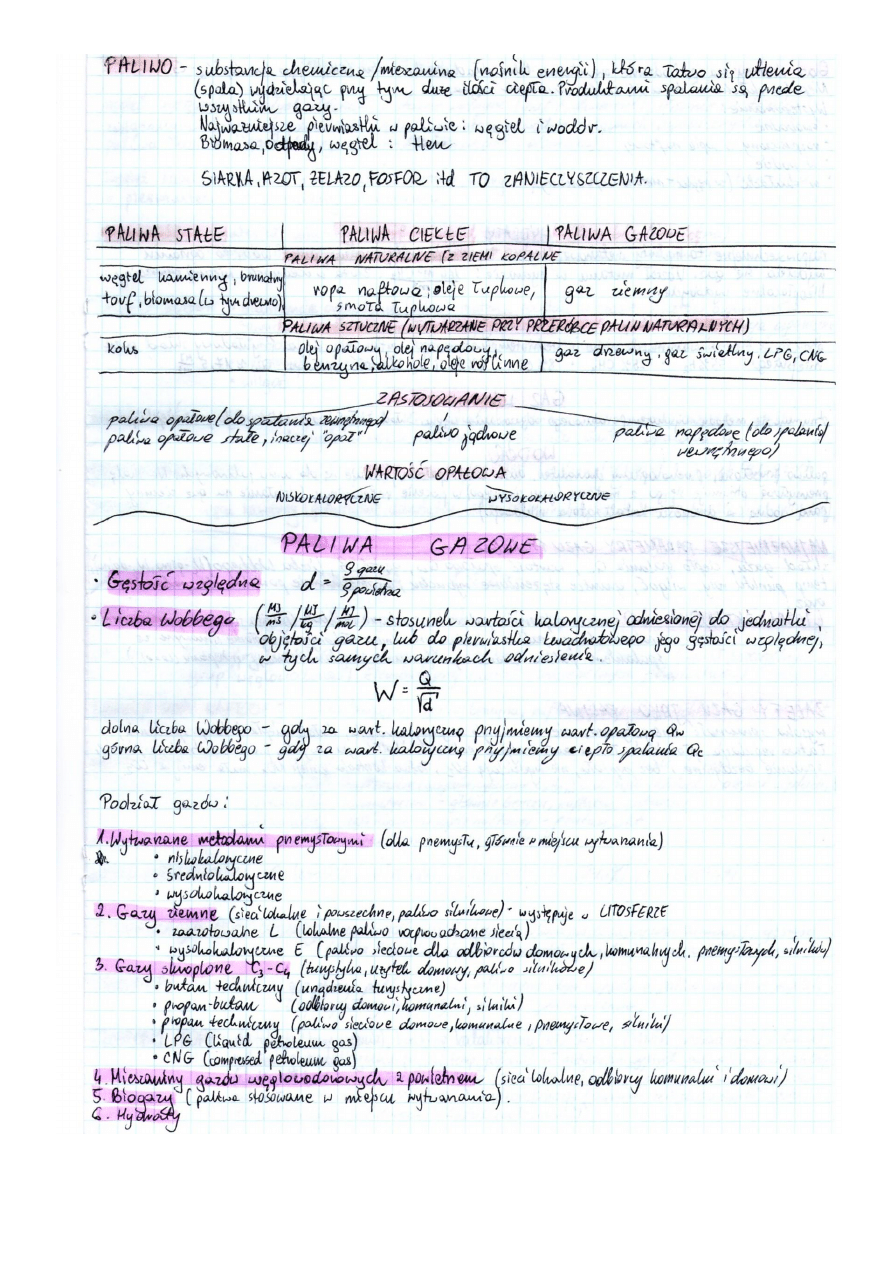 PALIWO - substancja chemiczna/mieszanina (nośnik energii), która łatwo się utlenia
(spala) wydzielając przy tym duże ilości ciepła. Produktami spalania są przede
wszystkim gazy.
Najważniejsze pierwiastki w paliwie: węgiel i wodór.
Biomasa, odpady, węgiel: tlen
SIARKA, AZOT, ŻELAZO, FOSFOR itd TO ZANIECZYSZCZENIA.
PALIWA STAŁE PALIWA CIEKŁE PALIWA GAZOWE
PALIWA NATURALNE (Z ZIEMI KOPALNE
węgiel kamienny, brunatny
torf, biomasa (w tym drewno)
ropa naftowa; oleje łupkowe,
smoła łupkowa
gaz ziemny
PALIWA SZTUCZNE (WYTWARZANE PRZY PRZERÓBCE PALIW NATURALNYCH)
koks
olej opałowy, olej napędowy,
benzyna, alkohole, oleje roślinne
gaz drzewny, gaz świetlny, LPG, CNG
ZASTOSOWANIE
paliwa opałowe (do spalania zewnętrznego)
paliwa opałowe stałe, inaczej "opał"
paliwo jądrowe
paliwa napędowe (do spalania
wewnętrznego)
WARTOŚĆ OPAŁOWA
NISKOKALORYCZNE WYSOKOKALORYCZNE
PALIWA GAZOWE
• Gęstość względna d = ρ gazu / ρ powietrza
• Liczba Wobbego (MJ/m3 / MJ/kg / MJ/mol) - stosunek wartości kalorycznej odniesionej do jednostki
objętości gazu, lub do pierwiastka kwadratowego jego gęstości względnej,
w tych samych warunkach odniesienia.
W = Q/√d
dolna liczba Wobbego - gdy za wart. kaloryczną przyjmiemy wart. opałową Qw
górna liczba Wobbego - gdy za wart. kaloryczną przyjmiemy ciepło spalania Qc
Podział gazów:
1. Wytwarzane metodami przemysłowymi (dla przemysłu, głównie w miejscu wytwarzania)
• niskokaloryczne
• średniokaloryczne
• wysokokaloryczne
2. Gazy ziemne (sieci lokalne i powszechne, paliwo silnikowe) - występuje w LITOSFERZE
• zaazotowane L (lokalne paliwo rozprowadzane siecią)
• wysokokaloryczne E (paliwo sieciowe dla odbiorców domowych, komunalnych, przemysłowych, silników)
3. Gazy skroplone C3-C4 (turystyka, użytek domowy, paliwo silnikowe)
• butan techniczny (urządzenia turystyczne)
• propan-butan (odbiorcy domowi, komunalni, silniki)
• propan techniczny (paliwo sieciowe domowe, komunalne, przemysłowe, silniki)
• LPG (liquid petroleum gas)
• CNG (compressed petroleum gas)
4. Mieszaniny gazów węglowodorowych z powietrzem (sieci lokalne, odbiorcy komunalni i domowi)
5. Biogazy (paliwa stosowane w miejscu wytwarzania).
6. Hydraty